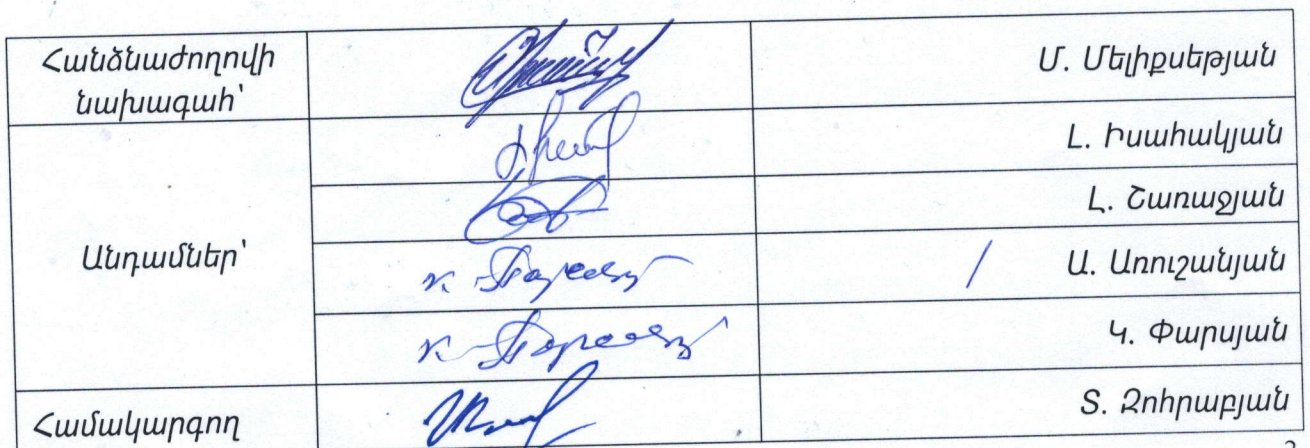 Հանձնաժողովի
նախագահ՝
Մ. Մելիքսեթյան
Անդամներ՝
Լ. Իսահակյան
Լ. Շառաջյան
Ա. Առուշանյան
Կ. Փարսյան
Համակարգող
Տ. Զոհրաբյան